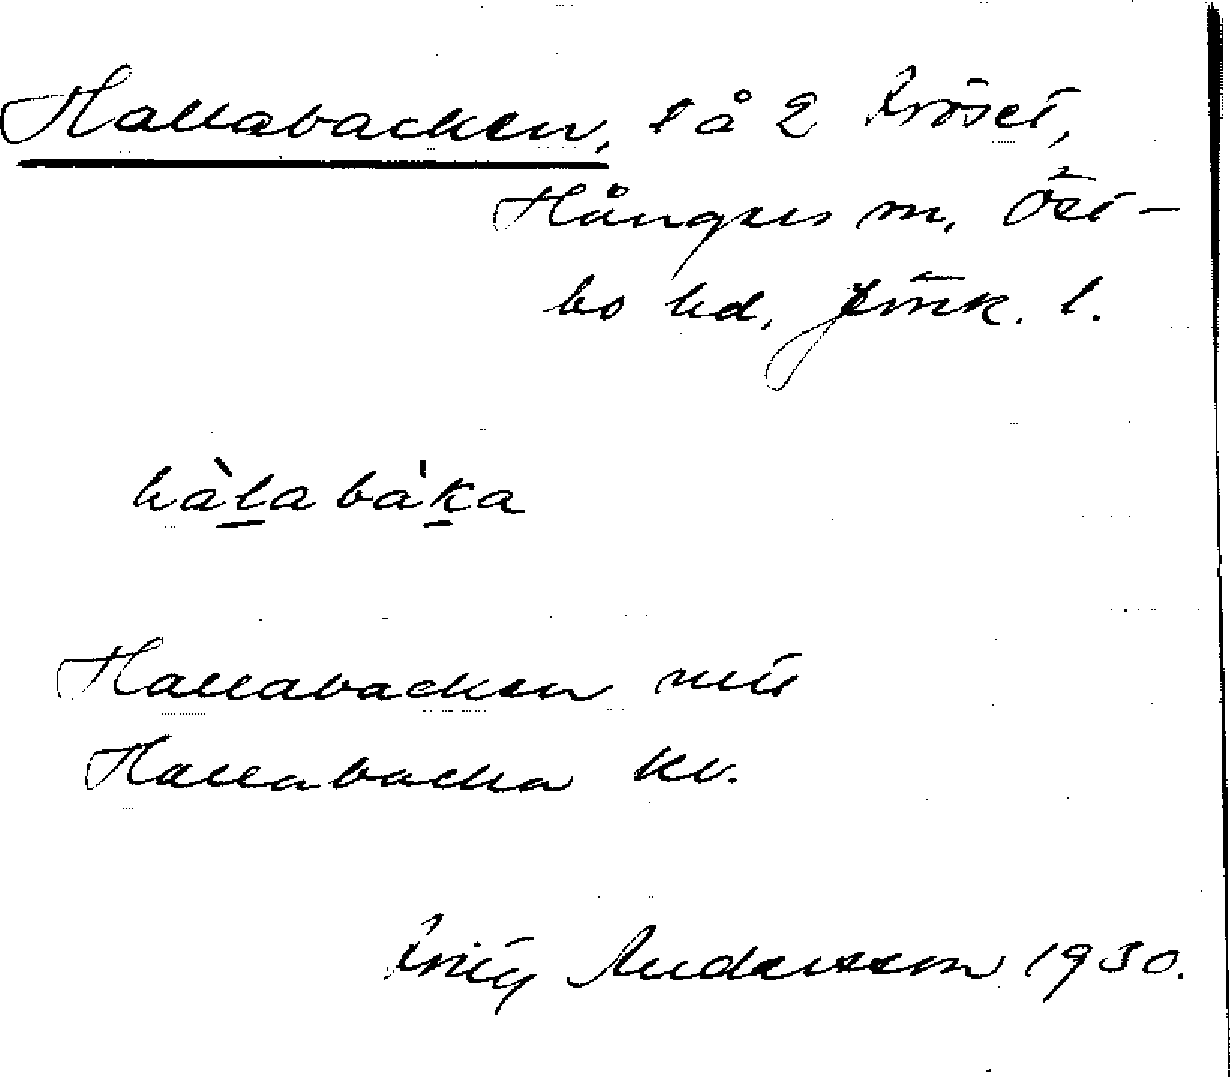 Hallabacken, l å 2 Kröset,
Hångers sn, Öst-
bo hd, Jönk. l.
hàlabàka
Hallabacken
Hallabacka kv.
Andersson 1930.